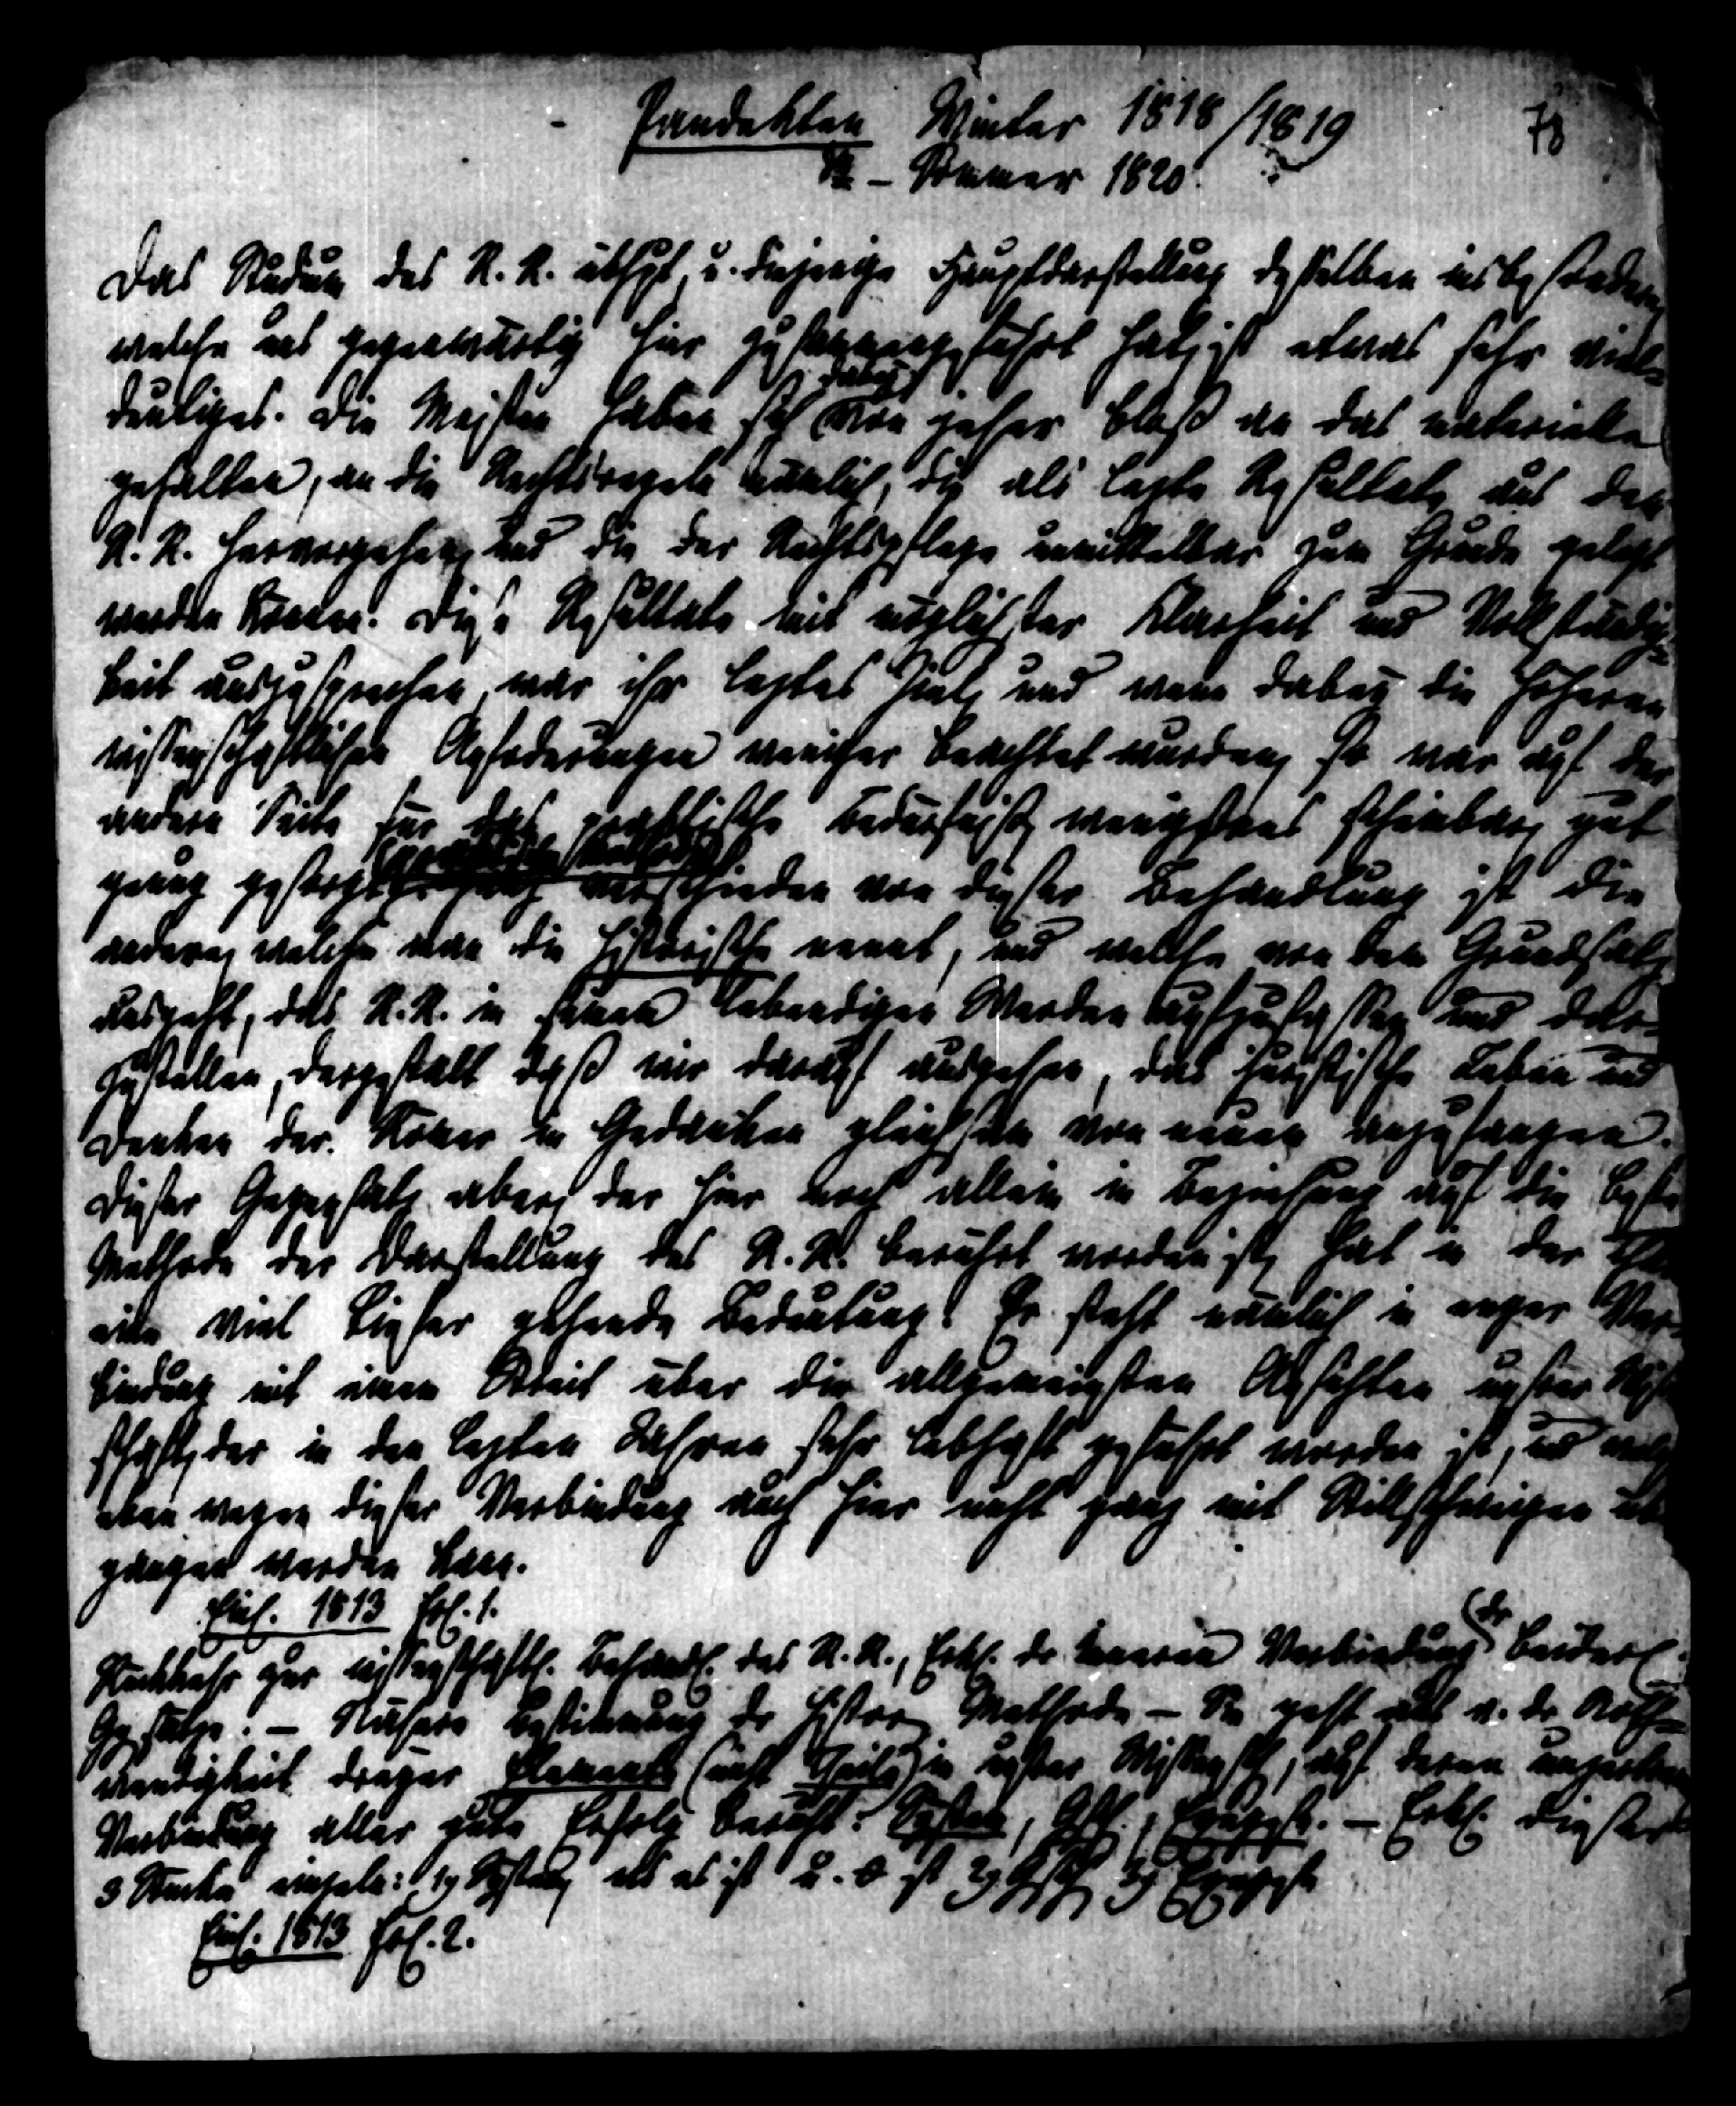 Pandekten Winter 1818/1819 78
– Sommer 1820.
Das Studium des R. R. überhpt, u. diejenige Hauptdarstellung desselben insbesondere,
welche uns gegenwärtig hier zusammengeführt hat, ist etwas sehr viel-
deutiges. Die Meisten haben sich dabey von jeher bloß an das materielle
gehalten, an die Rechtsregeln nämlich, die als letzte Resultate aus dem
R. R. hervorgehen, und die der Rechtspflege unmittelbar zum Grunde gelegt
werden können. Diese Resultate mit möglichster Klarheit und Vollständig-
keit auszusprechen, war ihr letztes Ziel, und wenn dabey die höheren
wissenschaftlichen Anfoderungen weniger beachtet wurden, so war auf der
andern Seite für das praktische Bedürfniß, wenigstens scheinbar, gut
genug gesorgt. verschieden von dieser Behandlung ist die
andere, welche man die historische nennt, und welche von dem Grundsatz
ausgeht, das R. R. in seinem lebendigen Werden aufzufassen und dar-
zustellen, dergestalt daß wir darauf ausgehen, das juristische Leben und
Denken der Römer in Gedanken gleichsam von neuem anzufangen.
Dieser Gegensatz aber, der hier noch allein in Beziehung auf die beste
Methode der Darstellung des R. R. berührt worden ist, hat in der That
eine viel tiefer gehende Bedeutung. Er steht nämlich in enger Ver-
bindung mit einem Streit über die allgemeinsten Ansichten unsrer Wissen
schaft, der in den letzten Jahren sehr lebhaft geführt worden ist, und
eben wegen dieser Verbindung auch hier nicht ganz mit Stillschweigen über
gangen werden kann.
Einl. 1813 fol. 1.
Rückkehr zur wissenschaftl. Behandl. des R. R., Erkl. der inneren Verbindung der beiderl.
Gesetze. – Nähere Bestimmung der histor. Methode – Sie geht aus v. der Noth-
wendigkeit dreyer Elemente (nicht Theile) in unsrer Wissensch., auf deren
Verbindung aller gute Erfolg beruht: System, Gesch., Exegese. – Erkl. dieser
3 Stücke einzeln: 1) System, was es ist u. ist 2) Gesch. 3) Exegese
Einl. 1813 fol. 2.